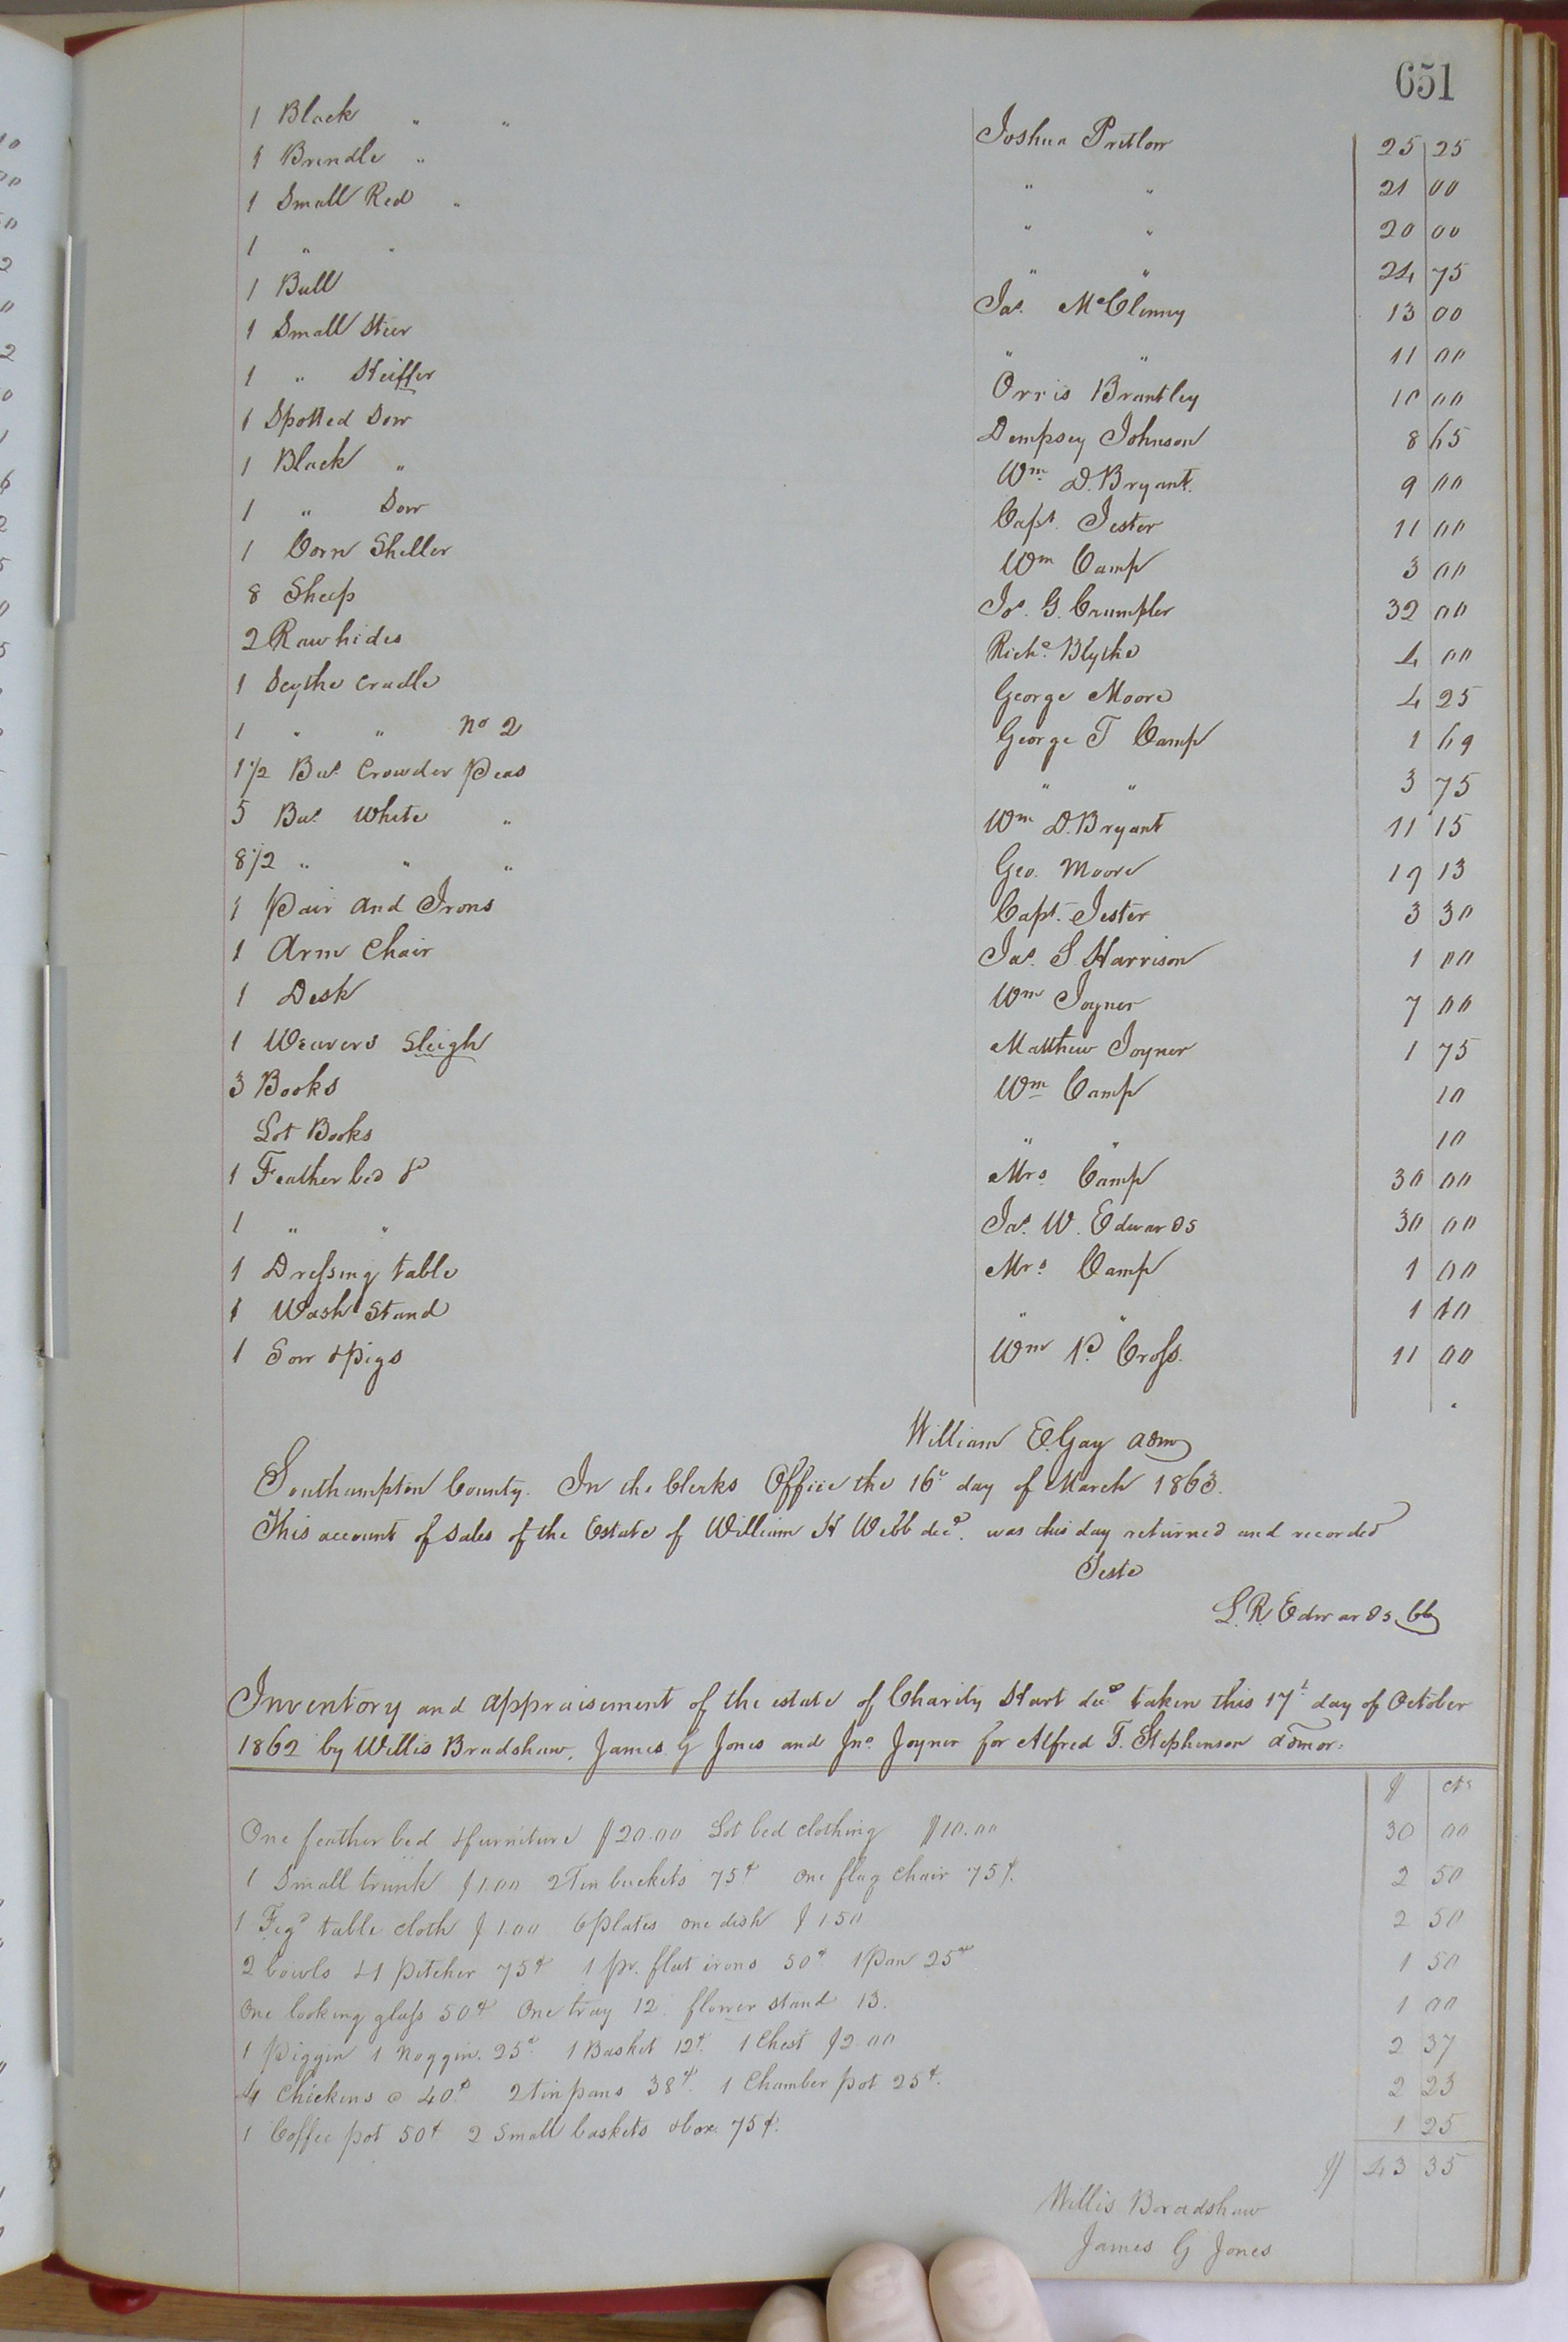 651
1 Black " " Joshua Pretlow 25 25
1 Brindle " " " 21 00
1 Small Red " " " 20 00
1 " " " " 24 75
1 Bull Jas. McClenny 13 00
1 Small Steer " " 11 00
1 " Heiffer Orris Brantley 10 00
1 Spotted Sow Dempsey Johnson 8 65
1 Black " Wm D. Bryant. 9 00
1 " Sow Capt. Jester 11 00
1 Corn Sheller Wm Camp 3 00
8 Sheep Jos. G. Crumpler 32 00
2 Raw hides Richd. Blythe 4 00
1 Scythe Cradle George Moore 4 25
1 " " No 2 George T Camp 1 69
1 1/2 Bus. Crowder Peas " " 3 75
5 Bus. White " Wm D. Bryant 11 15
8 1/2 " " " Geo. Moore 19 13
1 Pair and Irons Capt. Jester 3 30
1 Arm Chair Jas. S. Harrison 1 00
1 Desk Wm Joyner 7 00
1 Weavers Sleigh Matthew Joyner 1 75
3 Books Wm Camp 10
Lot Books " " 10
1 Feather bed &c Mrs. Camp 30 00
1 " " Jas. W. Edwards 30 00
1 Dressing table Mrs. Camp 1 00
1 Wash Stand " " 1 10
1 Sow & Pigs Wm P. Cross. 11 00
William E. Gay adm
Southampton County. In the Clerks Office the 16t day of March 1863.
This account of Sales of the Estate of William H Webb decd. was this day returned and recorded
Teste
L. R. Edwards Clk
Inventory and appraisement of the estate of Charity Hart decd taken this 17t day of October
1862 by Willis Bradshaw, James G Jones and Jno. Joyner for Alfred T. Stephenson admor.
$ cts
One feather bed & furniture $20.00 Lot bed clothing $10.00 30 00
1 Small trunk $1.00 2 Tin buckets 75¢ One flag chair 75¢. 2 50
1 Figd table cloth $1.00 6 plates one dish $1.50 2 50
2 bowls & 1 pitcher 75¢ 1 pr. flat irons 50¢ 1 Pan 25¢ 1 50
One looking glass 50¢ One tray 12. flower stand 13. 1 00
1 Piggin 1 Noggin. 25¢ 1 Basket 12¢. 1 Chest $2.00 2 37
4 Chickens @ 40¢ 2 tin pans 38¢. 1 Chamber pot 25¢. 2 23
1 Coffee pot 50¢ 2 Small baskets & box. 75¢. 1 25
$ 43 35
Willis Bradshaw
James G Jones